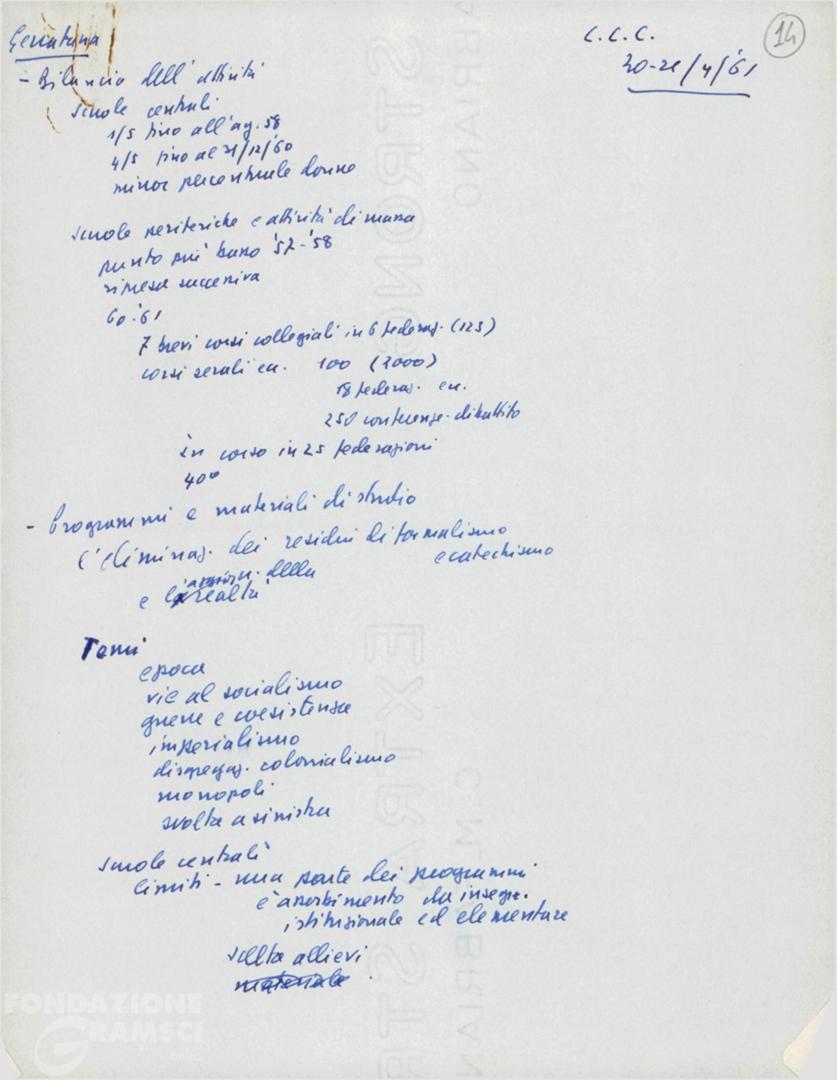 Gerratana
C.C.C.
14
20-21/4/'61
- Bilancio dell'attività
Scuole centrali
1/5 fino all'ag. 58
4/5 fino al 31/12/60
minor percentuale donne
Scuole periferiche e attività di massa
punto più basso '57-'58
ripresa successiva
60-61
7 brevi corsi collegiali in 6 federaz. (123)
corsi serali ca. 100 (2000)
18 federaz. ca.
250 conferenze-dibattito
in corso in 25 federazioni
400
- Programmi e materiali di studio
l'eliminaz. dei residui di formalismo
e catechismo
e la realtà
Temi
epoca
vie al socialismo
guerre e coesistenza
imperialismo
disgregaz. colonialismo
monopoli
svolta a sinistra
Scuole centrali
limiti - una parte dei programmi
è assorbimento da insegn.
istituzionale ed elementare
scelta allievi
materiale
FABRIANO
STRONG
EXTRA STR
C.M. FABRIAN
FONDAZIONE
GRAMSCI